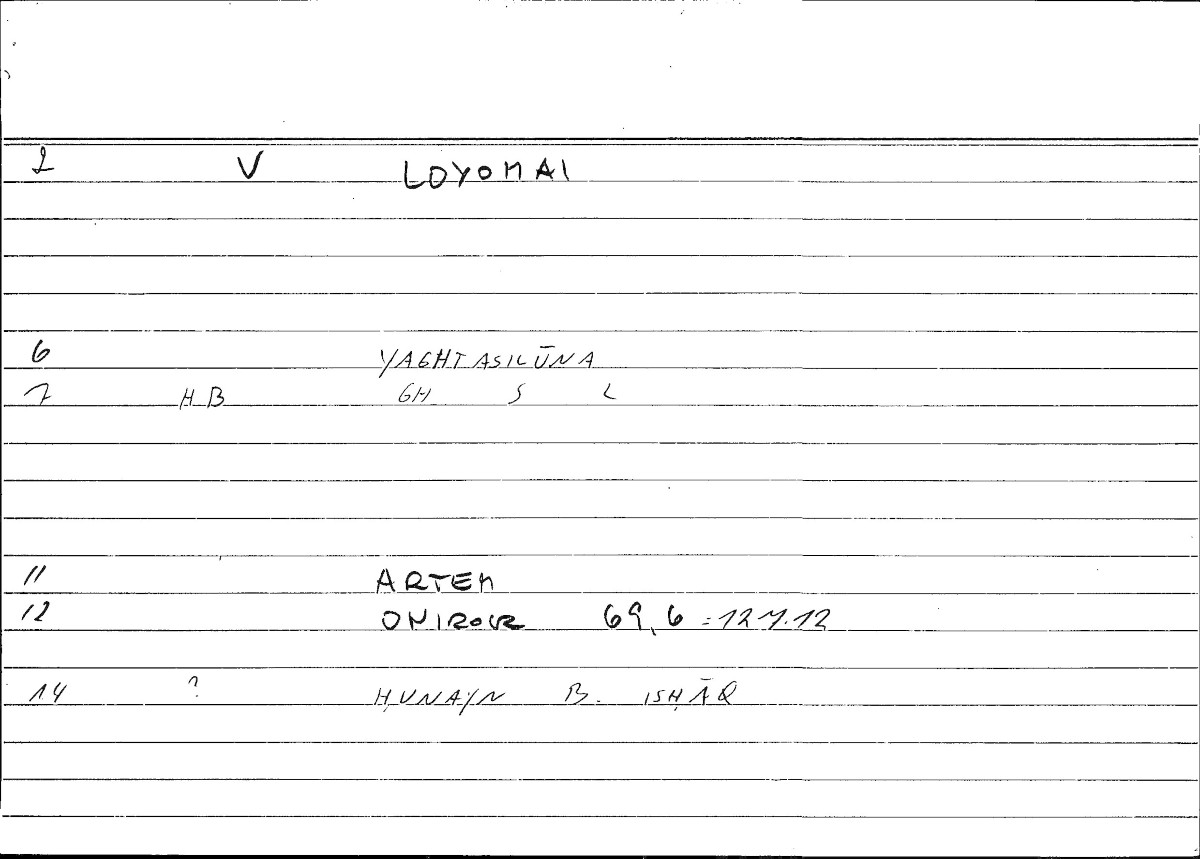 2 V LOYOMAI
6 YAGHTASILŪNA
7 HB GH S L
11 ARTEM
12 ONIROCR 69,6 = 127.12
14 ? ḤUNAYN B. ISḤĀQ